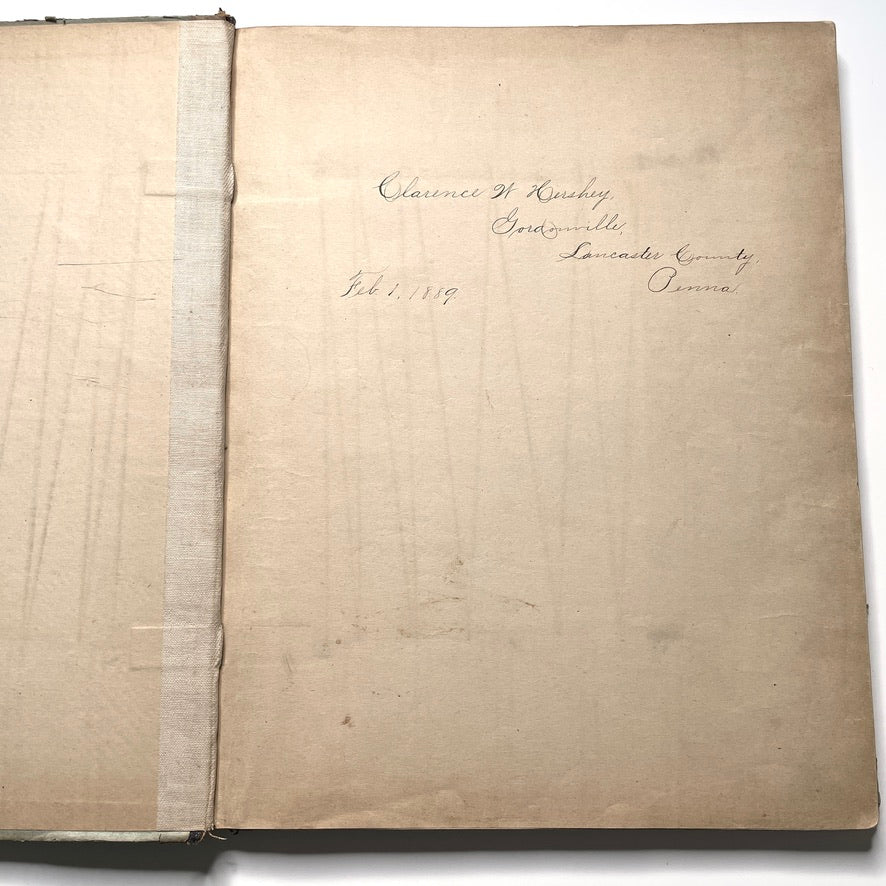 Clarence W Hershey,
Gordonville,
Lancaster County,
Penna.
Feb. 1, 1889.